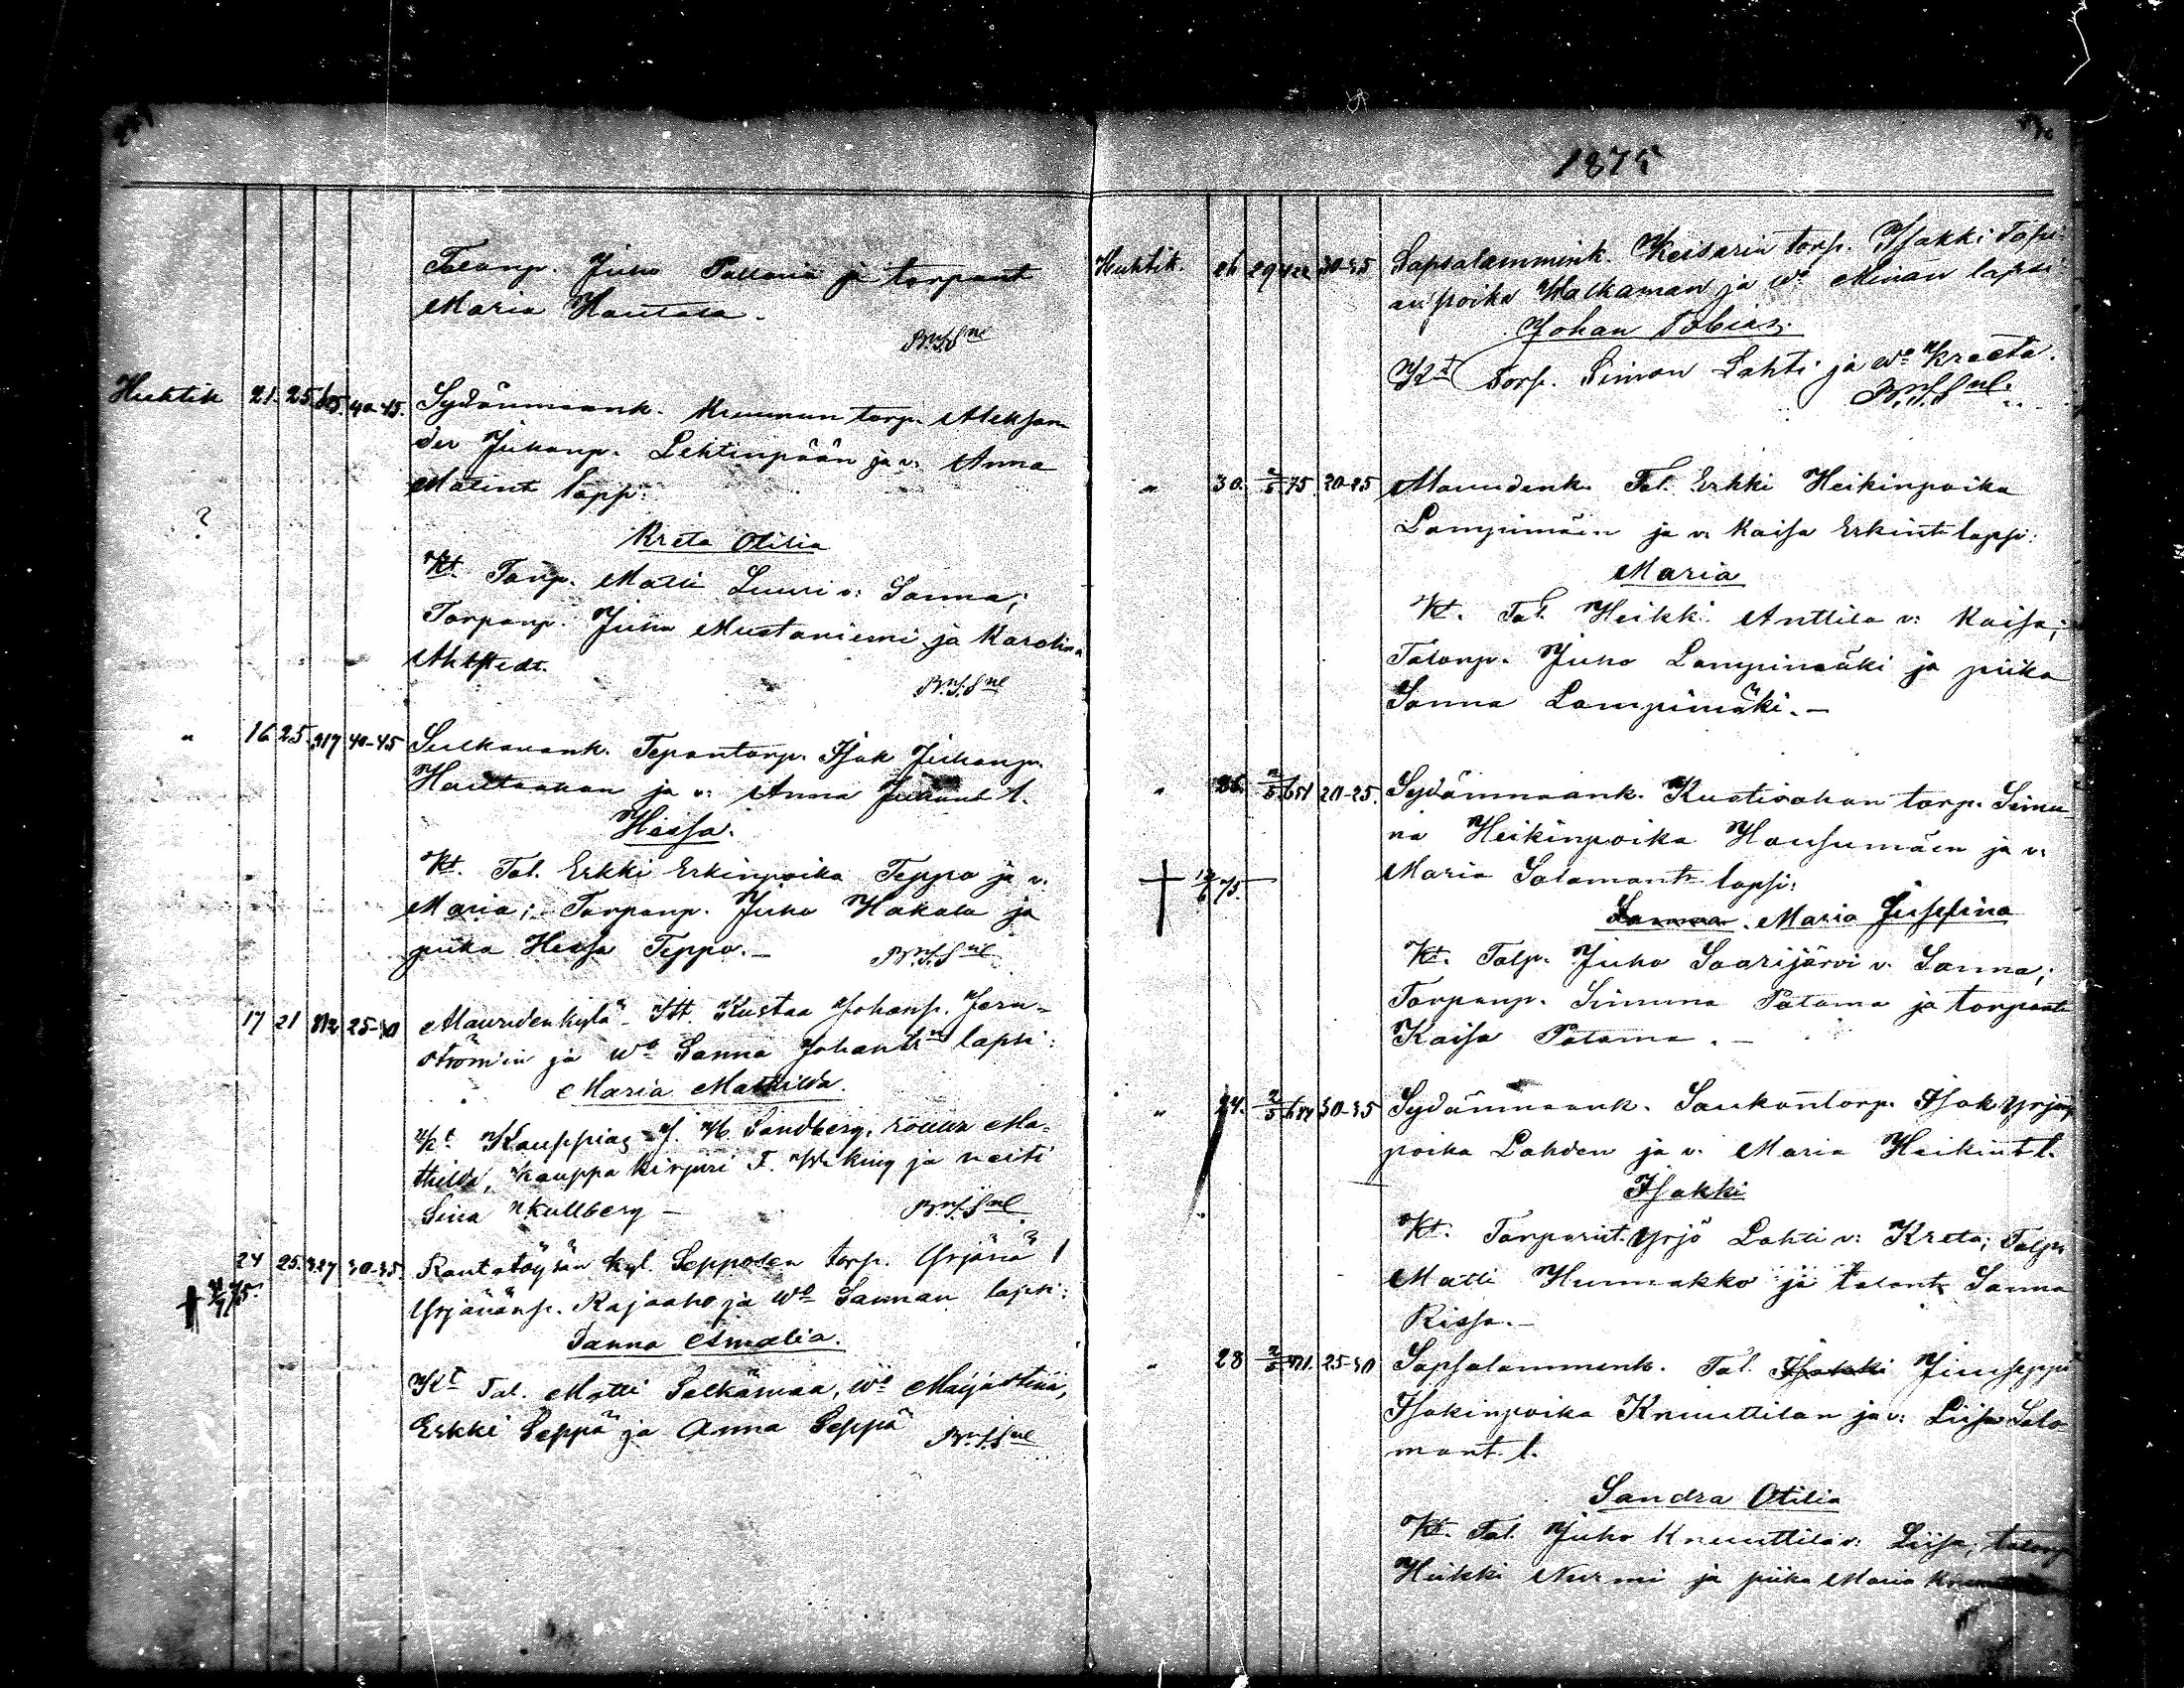 1875
Talonp. Juho Pallaria ja torpant
Maria Hautala.
Huhtik 21. 25. 605 40-45. Sydänmaank. Kruunun torp. Aleksan
der Juhonp. Lehtinpään ja v. Anna
Matint laps:
?
Kreta Otilia
Kt. Torp. Matti Luuri v: Sanna;
Torpanp. Juho Mustaniemi ja Karolina
Ahlstedt.
" 16 25. 917 40-45 Sulkavank. Tepontorp. Isak Juhonp.
Hauttaahon ja v: Anna Juhont l.
Hessa.
Kt. Tal. Erkki Erkinpoika Teppo ja v.
Maria; Torpanp. Juho Hakala ja
piika Hessa Teppo.
17 21 25-30 Alavuden kylä Itt. Kustaa Johanp. Jern-
strömin ja Wo Sanna Johantrn lapsi:
Maria Mathilda.
Kt Kauppias J. H. Sandberg, rouva Ma-
thilda, kauppa kirjuri F. Wiking ja neiti
Sina Kullberg
24 25. 327 30-35. Rautatöysän kyl. Seppolan torp. Yrjänä
Yrjänänp. Rajaaho ja Wo Sannan lapsi:
Sanna Amalia.
Kt Tal. Matti Pelkämaa, Wo Maijastina,
Erkki Seppä ja Anna Seppä
Huhtik. 26 29 30-35 Sapsalammink. Keiserin torp. Isakki Tapi
anpoika Walkaman ja Wo Minan lapsi
Johan Tobias.
Kt Torp. Simon Lahti ja Wo Kreeta.
" 30. 2/5 75 20-25 Alavudenk. Tal. Erkki Heikinpoika
Lampimäen ja v: Kaisa Erkint lapsi:
Maria
Kt. Tal. Heikki Anttila v: Kaisa;
Talonp. Juho Lampimäki ja piika
Sanna Lampimäki.
" 2/5 651 20-25. Sydänmaank. Kustisahon torp. Simu
na Heikinpoika Housumäen ja v:
Maria Salamont lapsi:
Sanna. Maria Jusefina
Kt. Talp. Juho Saarijärvi v: Sanna;
Torpanp. Simuna Patama ja torpant
Kaisa Patama.
" 24. 2/5 30-35 Sydänmaank. Saukontorp. Isak Yrjön
poika Lahden ja v. Maria Heikint l.
Isakki
Kt. Torpariut. Yrjö Lahti v: Kreta; Talp.
Matti Hunnakko ja talont Sanna
Rissa.
" 28 2/5 25-30 Sapsalammink. Tal. Isakki Juuseppi
Isakinpoika Knuuttilan ja v: Liisa Salo
mont l.
Sandra Otilia
Kt. Tal. Juho Knuuttila v: Liisa, talonp
Heikki Nurmi ja piika Maria